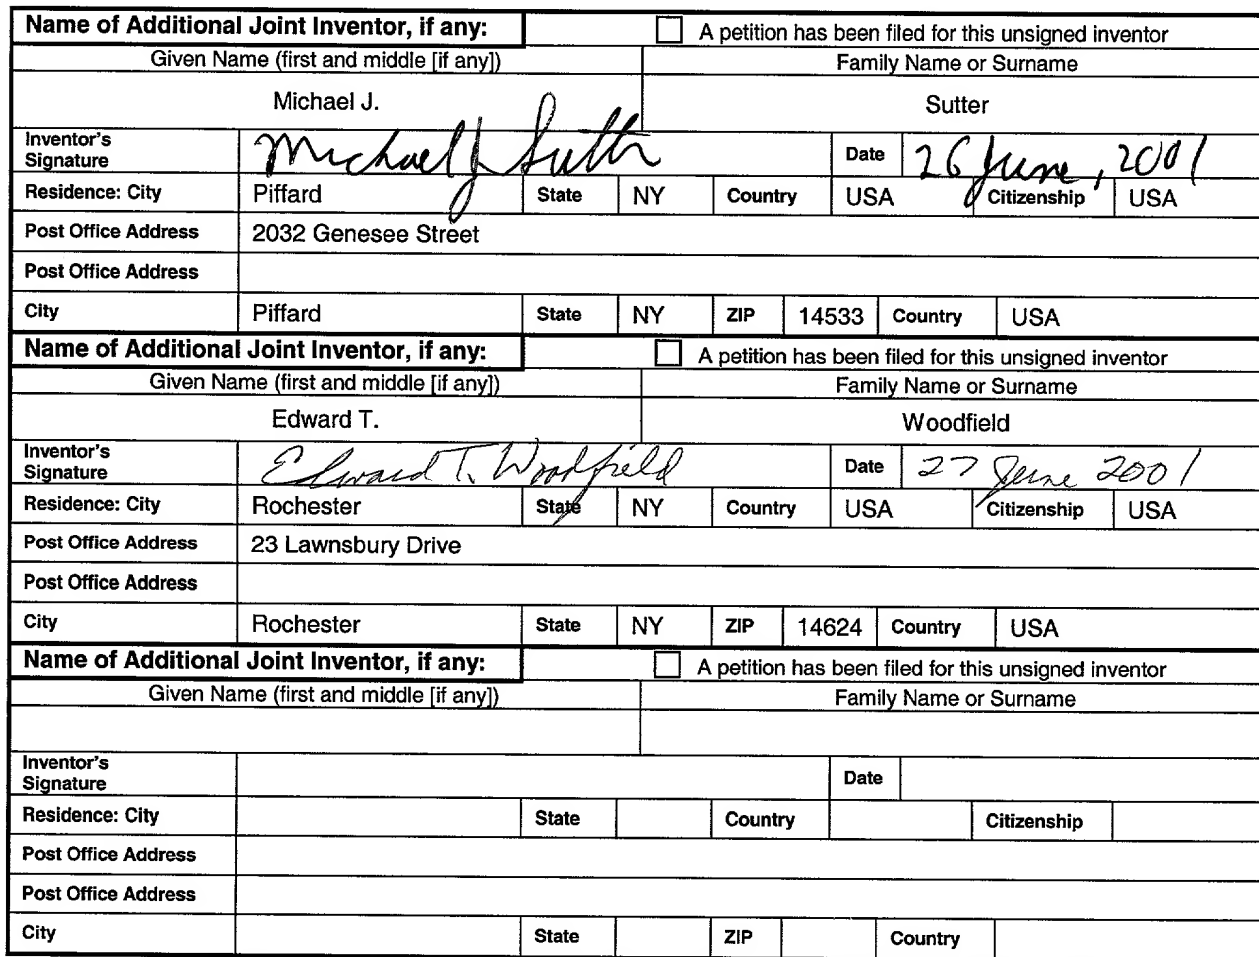 Name of Additional Joint Inventor, if any: A petition has been filed for this unsigned inventor
Given Name (first and middle [if any]) Family Name or Surname
Michael J. Sutter
Inventor's Signature Michael J Sutter Date 26 June, 2001
Residence: City Piffard State NY Country USA Citizenship USA
Post Office Address 2032 Genesee Street
Post Office Address
City Piffard State NY ZIP 14533 Country USA
Name of Additional Joint Inventor, if any: A petition has been filed for this unsigned inventor
Given Name (first and middle [if any]) Family Name or Surname
Edward T. Woodfield
Inventor's Signature Edward T. Woodfield Date 27 June 2001
Residence: City Rochester State NY Country USA Citizenship USA
Post Office Address 23 Lawnsbury Drive
Post Office Address
City Rochester State NY ZIP 14624 Country USA
Name of Additional Joint Inventor, if any: A petition has been filed for this unsigned inventor
Given Name (first and middle [if any]) Family Name or Surname
Inventor's Signature Date
Residence: City State Country Citizenship
Post Office Address
Post Office Address
City State ZIP Country